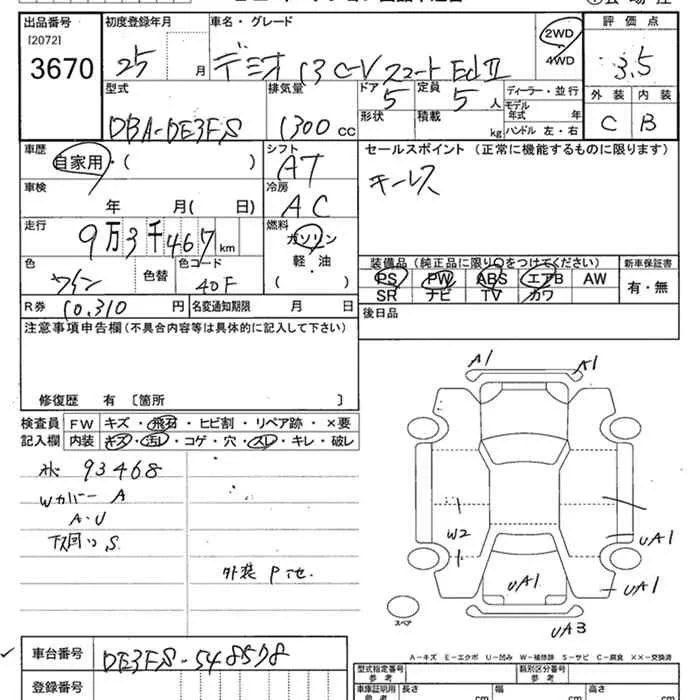 出品番号 初度登録年月 車名・グレード 評価点
[2072]
3670 25 月 デミオ 13 C-V スマート Ed Ⅱ 2WD 4WD 3.5
型式 排気量 ドア 定員 ディーラー・並行 外装 内装
DBA-DE3FS 1300 cc 5 5 人 モデル年式 年 C B
形状 積載 kg ハンドル 左・右
車歴 シフト セールスポイント(正常に機能するものに限ります)
自家用・( ) AT キーレス
車検 冷房
年 月( 日) AC
走行 燃料
9万3千467 km ガソリン
軽・油
( )
色 色替 色コード 装備品(純正品に限り○をつけてください) 新車保証書
ワイン 40F PS PW ABS エアB AW 有・無
SR ナビ TV カワ
R券 10.310 円 名変通知期限 月 日 後日品
注意事項申告欄(不具合内容等は具体的に記入して下さい)
修復歴 有 〔箇所 〕
検査員 FW キズ・飛石・ヒビ割・リペア跡・×要
記入欄 内装 キズ・汚レ・コゲ・穴・スレ・キレ・破レ
93468
Wカバー A
A・U
下回り S
外装 P
A1 A1
W2
UA1
UA1
UA1
UA3
スペア
A-キズ E-エクボ U-凹み W-補修跡 S-サビ C-腐食 ××-交換済
車台番号 DE3FS-548578
登録番号
型式指定番号 参考 類別区分番号 参考
車庫証明用 参考 長さ cm 幅 cm 高さ cm